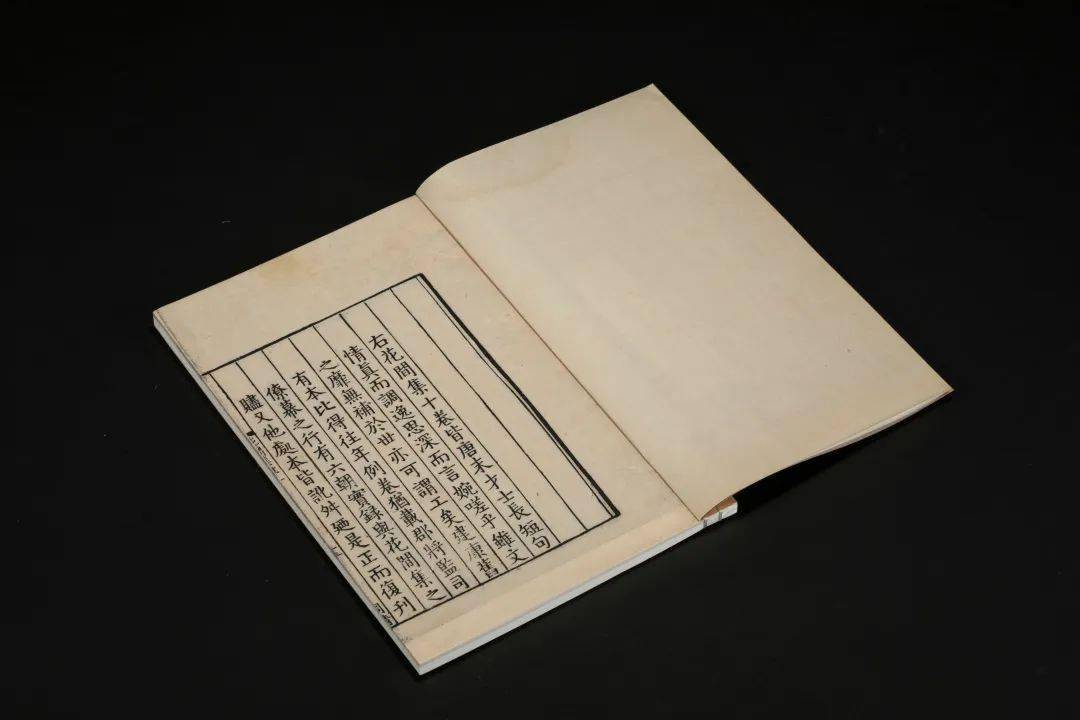 右花間集十卷皆唐末才士長短句
情眞而調逸思深而言婉嗟乎雖文
之靡無補於世亦可謂工矣建康舊
有本比得往年例卷猶載郡將監司
僚幕之行有六朝實録與花間集之
贐又他處本皆訛舛廼是正而復刊